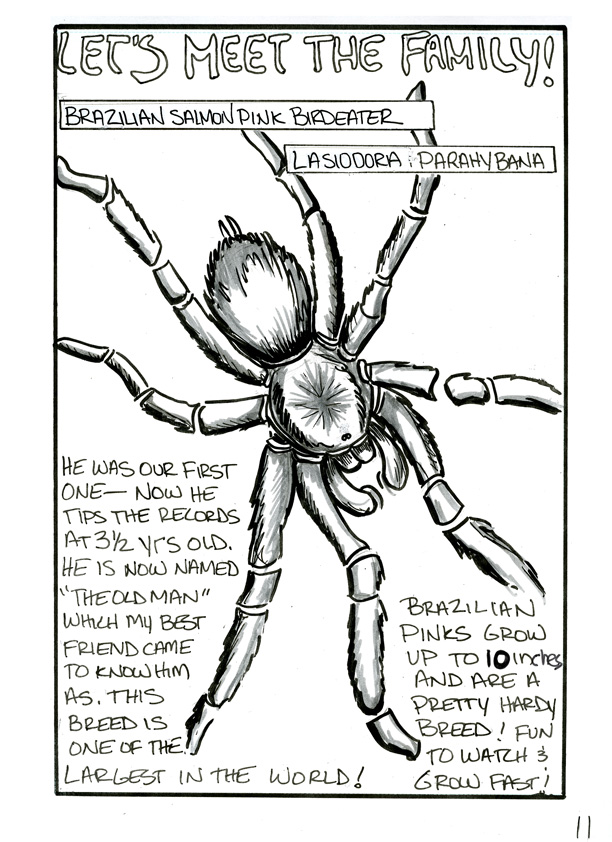 LET'S MEET THE FAMILY!
BRAZILIAN SALMON PINK BIRDEATER
LASIODORA PARAHYBANA
HE WAS OUR FIRST
ONE— NOW HE
TIPS THE RECORDS
AT 3½ yrs OLD.
HE IS NOW NAMED
"THE OLD MAN"
WHICH MY BEST
FRIEND CAME
TO KNOW HIM
AS. THIS
BREED IS
ONE OF THE
LARGEST IN THE WORLD!
BRAZILIAN
PINKS GROW
UP TO 10 inches
AND ARE A
PRETTY HARDY
BREED! FUN
TO WATCH &
GROW FAST!
11